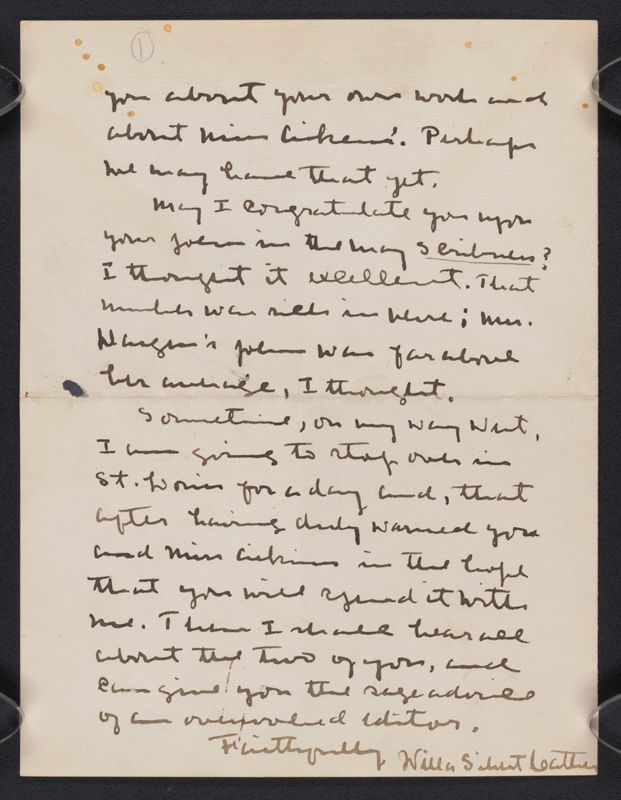 1
you about your own work and
about Miss Aikens'. Perhaps
we may have that yet.
May I congratulate you upon
your poem in the May Scribners?
I thought it excellent. That
number was rich in verse; Mrs.
poem was far above
her average, I thought.
Sometime, on my way West,
I am going to stop over in
St. Louis for a day and, that
after having duly warned you
and Miss Aikins in the hope
that you will spend it with
me. Then I shall hear all
about the two of you, and
can give you the sage advice
of an overworked editor.
Faithfully Willa Sibert Cather